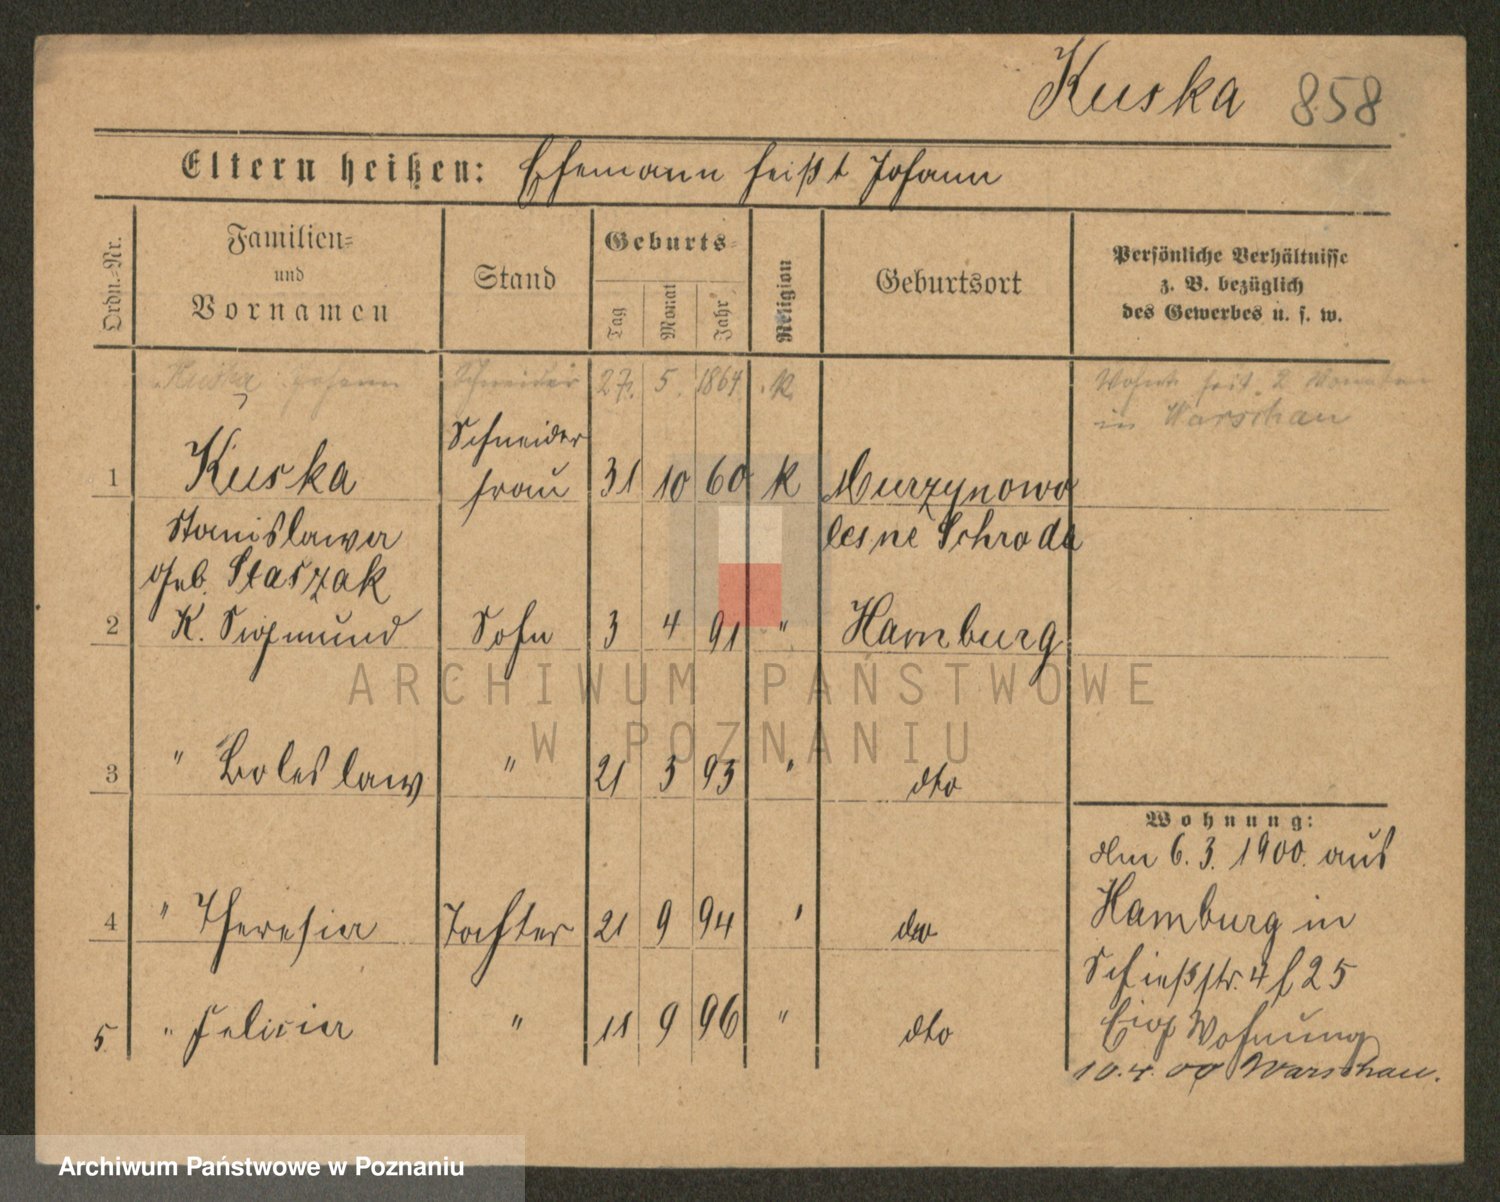 Kuska 858
Eltern heißen: Ehemann heißt Johann
Ordn.-Nr. Familien- und Vornamen Stand Geburts- Tag Monat Jahr Religion Geburtsort Persönliche Verhältnisse z. B. bezüglich des Gewerbes u. s. w.
Kuska Johann Schneider 27. 5. 1864. k. Wohnt seit 2 Monaten
in Warschau
Schneider
1 Kuska frau 31 10 60 k Murzynowo
Stanislawa lesne Schroda
geb. Staszak
2 K. Sigmund Sohn 3 4 91 " Hamburg
3 " Boleslaw " 21 3 93 " dto
4 " Theresia Tochter 21 9 94 " dto
5. " Felicia " 11 9 96 " dto
Wohnung:
Am 6. 3. 1900. aus
Hamburg in
Schießstr. 4 f 25
Eig Wohnung
10.4.00 Warschau.
ARCHIWUM PAŃSTWOWE
W POZNANIU
Archiwum Państwowe w Poznaniu